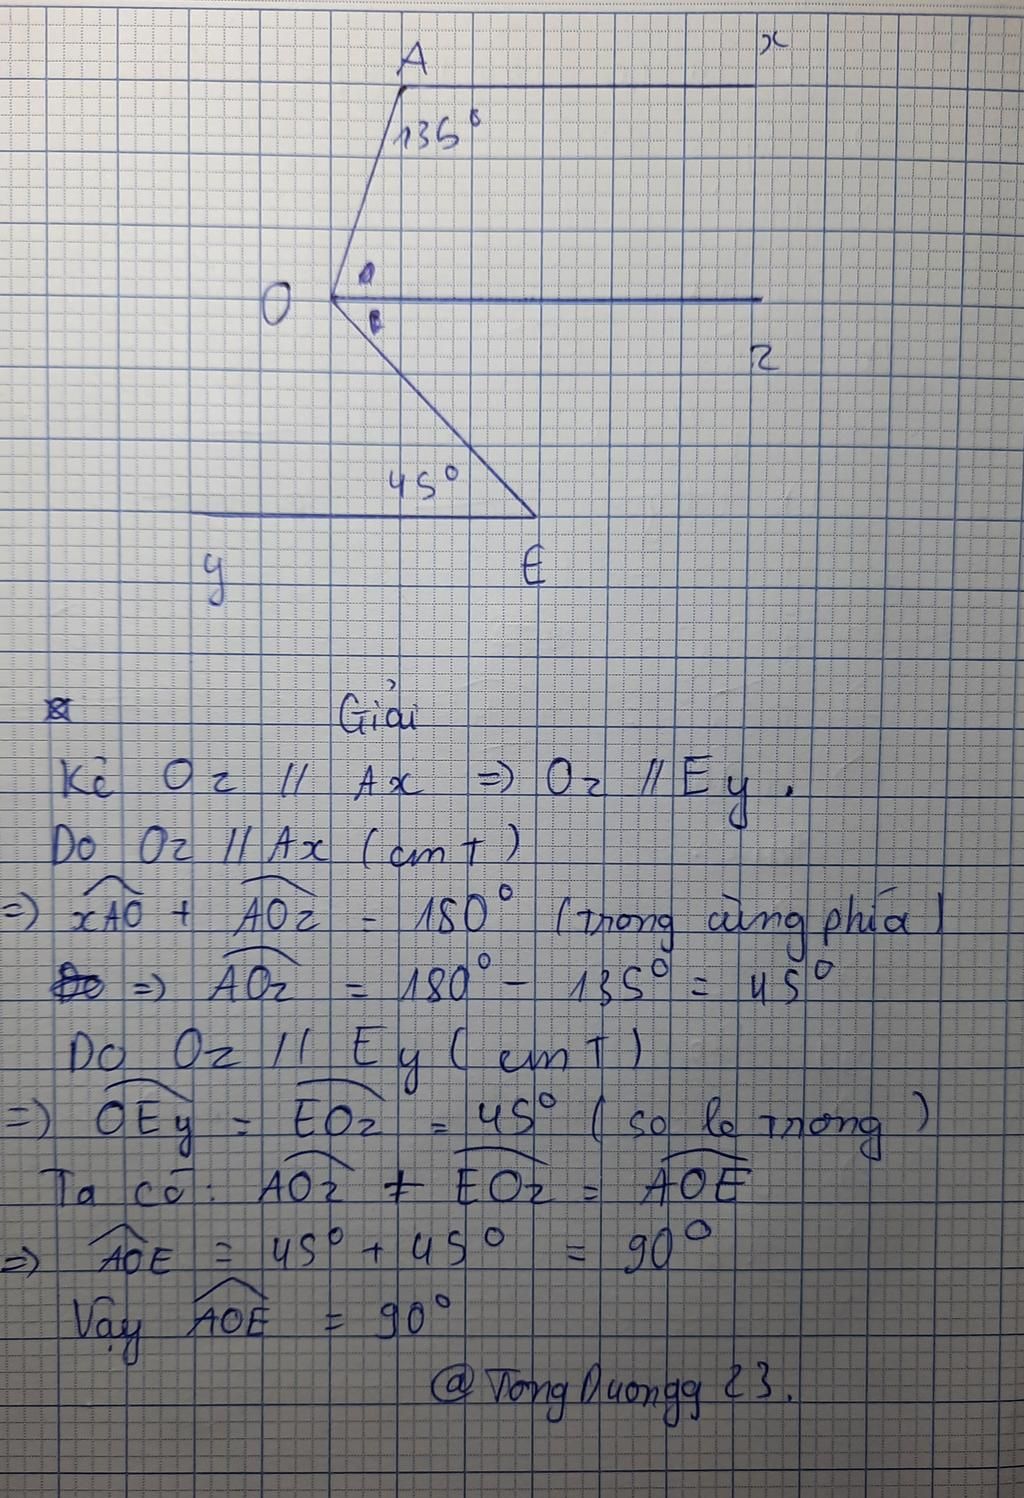 A
x
135°
O
z
45°
y
E
Giải
Kẻ Oz // Ax => Oz // Ey.
Do Oz // Ax (cmT)
=> xAO + AOz = 180° (trong cùng phía)
=> AOz = 180° - 135° = 45°
Do Oz // Ey (cmT)
=> OEy = EOz = 45° (so le trong)
Ta có: AOz + EOz = AOE
=> AOE = 45° + 45° = 90°
Vậy AOE = 90°
@TongDuongg23.